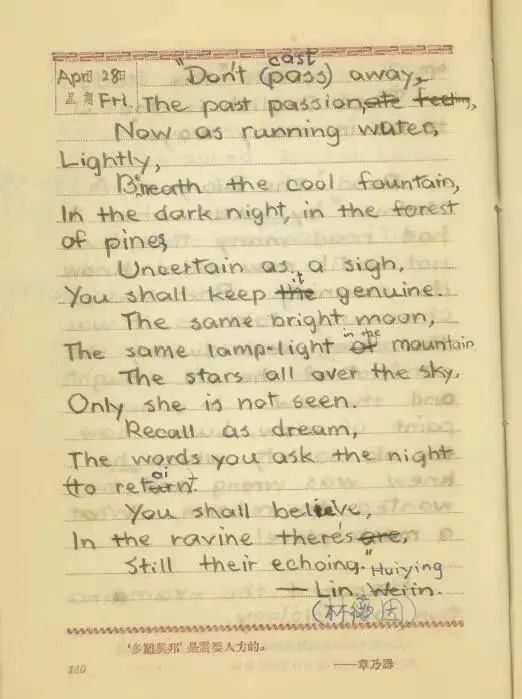 cast
April 28日 "Don't (pass) away,
星期 Fri. The past passion,ate feeling,
Now as running water,
Lightly,
Beneath the cool fountain,
In the dark night, in the forest
of pines,
Uncertain as a sigh,
it
You shall keep the genuine.
The same bright moon,
in the
The same lamp-light of mountain
The stars all over the sky,
Only she is not seen.
Recall as dream,
The words you ask the night
ai
(to return.
You shall believe,
In the ravine there's are,
Still their echoing." Huiying
— Lin Weiin.
(林徽因)
'多難興邦'是需要人力的。
——章乃器
120